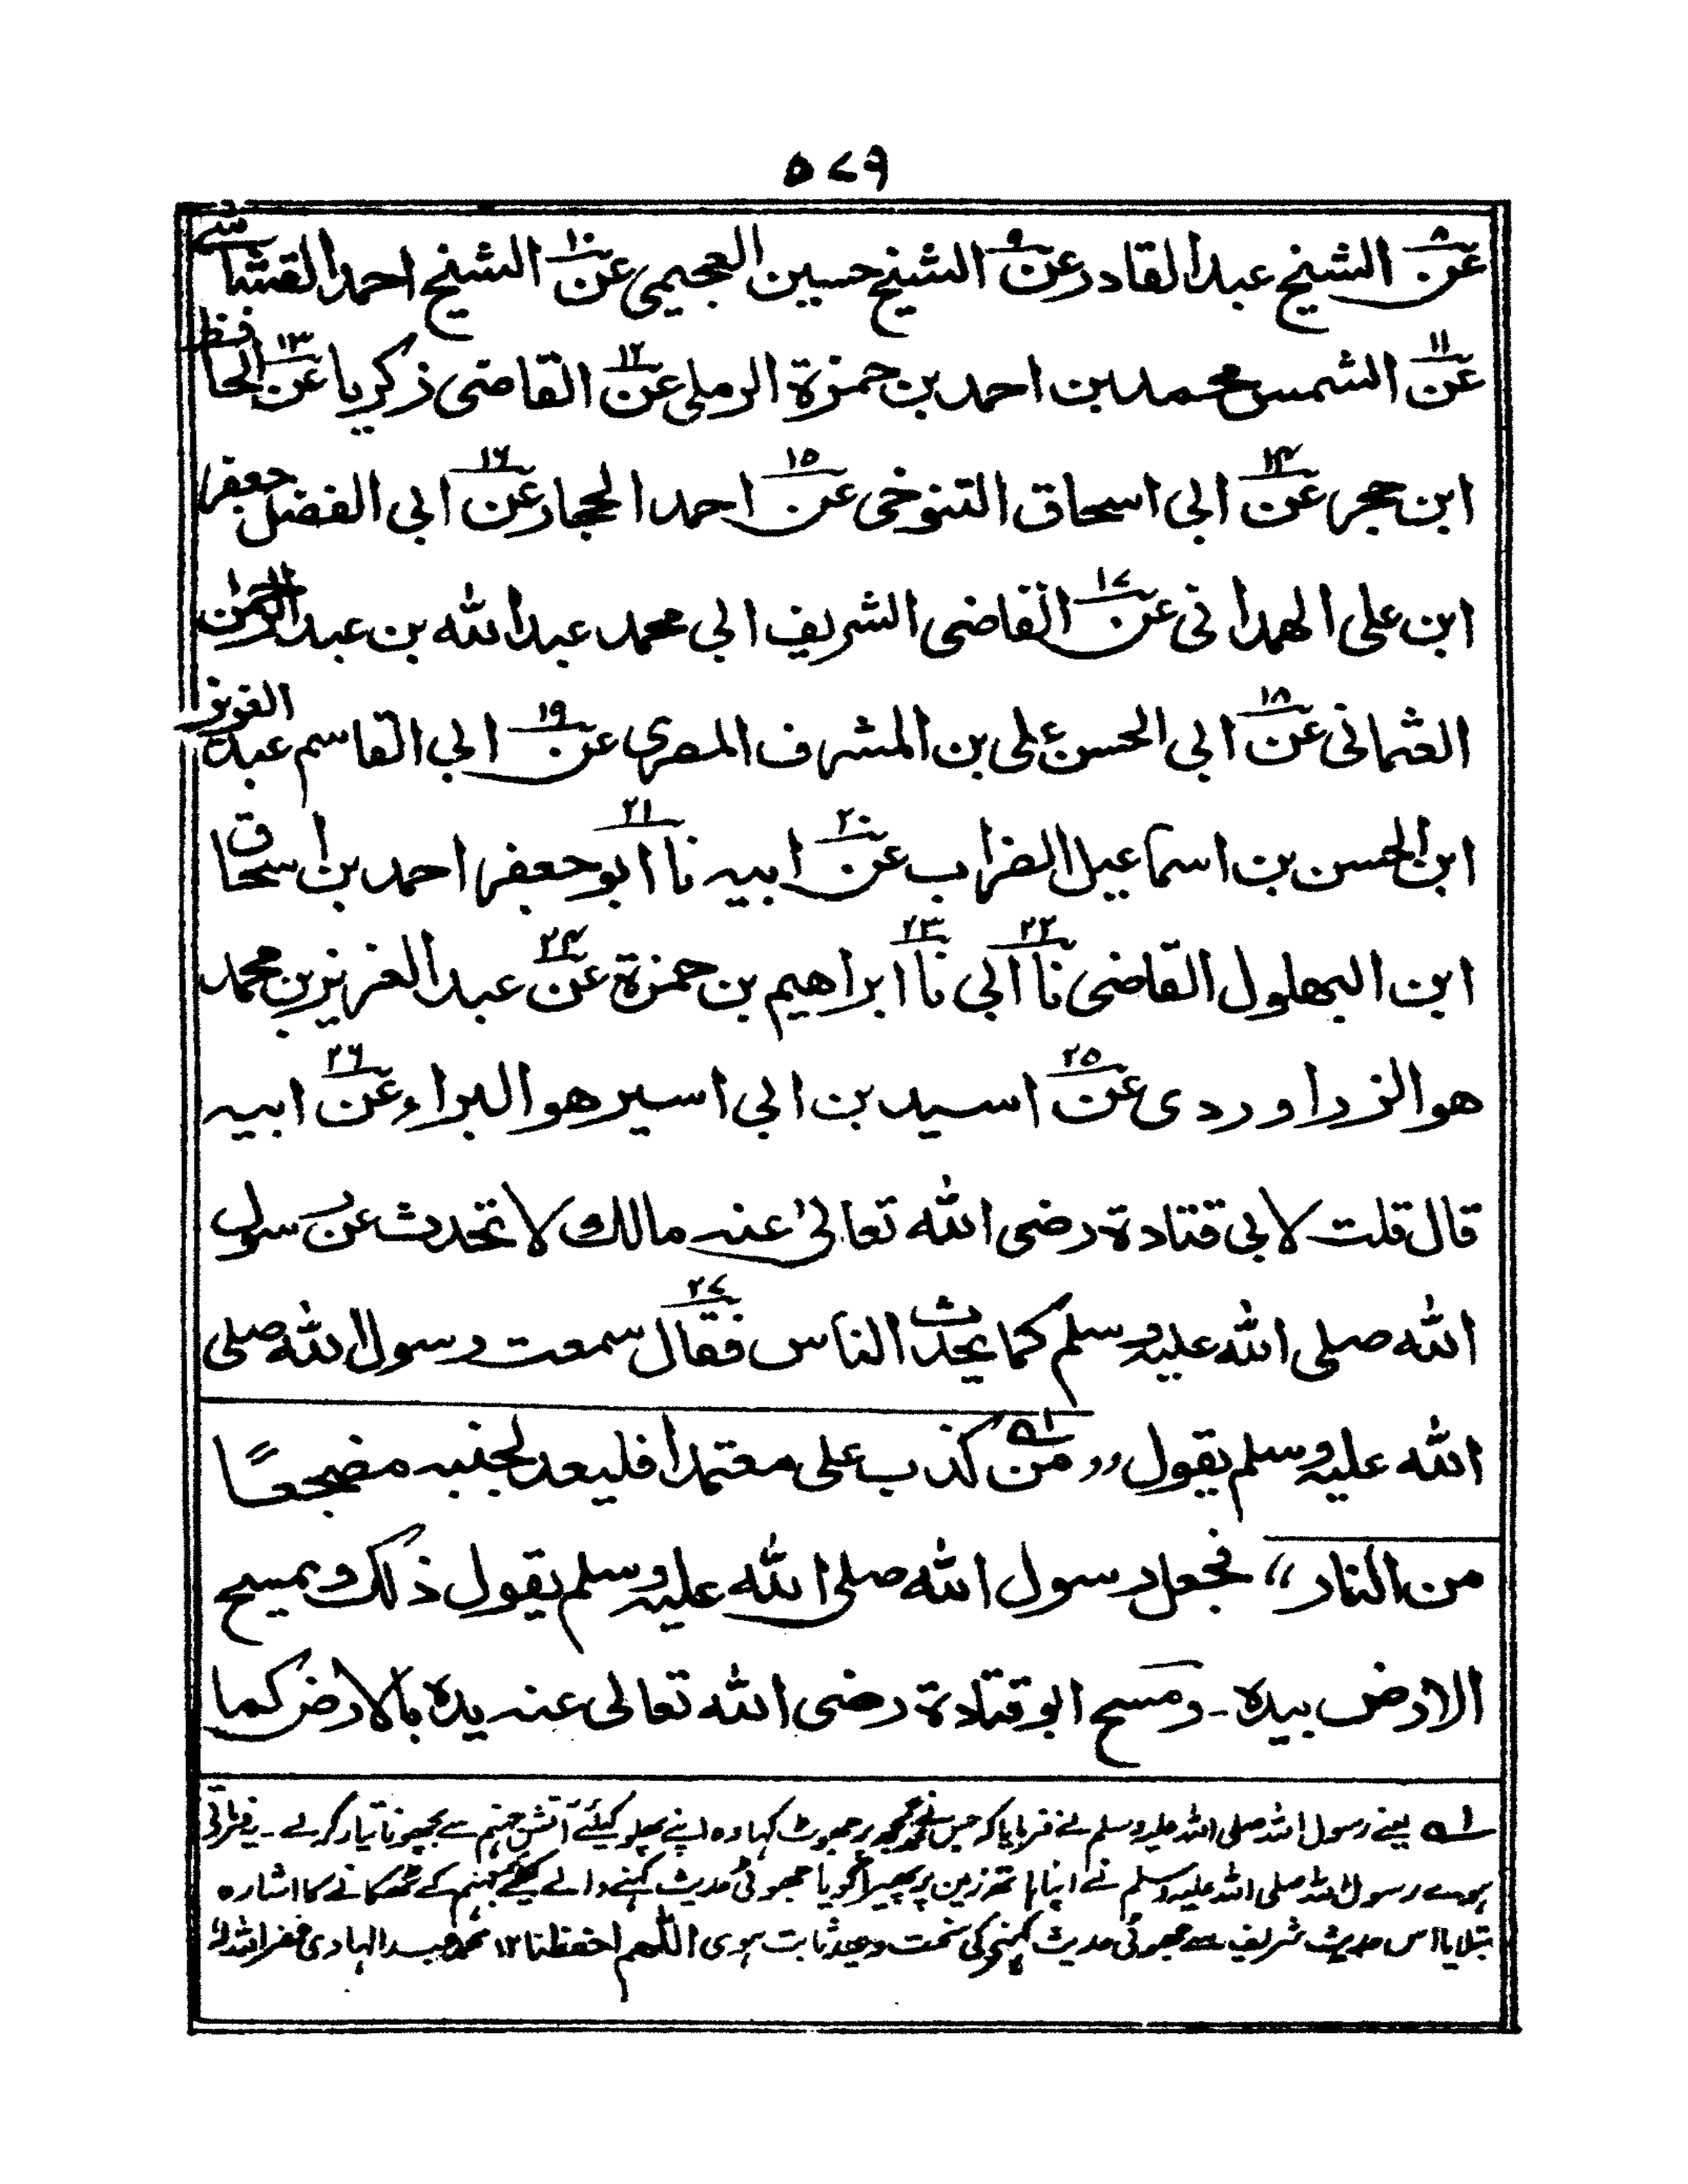 ۵۷۹
عن۸ الشیخ عبدالقادر عن۹ الشیخ حسین العجیمی عن۱۰ الشیخ احمد القشاشی
عن۱۱ الشمس محمد بن احمد بن حمزة الرملی عن۱۲ القاضی ذکریا عن۱۳ الحافظ
ابن حجر عن۱۴ ابی اسحاق التنوخی عن۱۵ احمد الحجار عن۱۶ ابی الفضل جعفر
ابن علی الهمدانی عن۱۷ القاضی الشریف ابی محمد عبدالله بن عبدالرحمن
العثمانی عن۱۸ ابی الحسن علی بن المشرف المصری عن۱۹ ابی القاسم عبد
ابن الحسن بن اسماعیل الضراب عن۲۰ ابیه نا۲۱ ابو جعفر احمد بن اسحاق
ابن البهلول القاضی نا۲۲ ابی نا۲۳ ابراهیم بن حمزة عن۲۴ عبد العزیز بن محمد
هو الزراوردی عن۲۵ اسید بن ابی اسیر هو البراء عن۲۶ ابیه
قال قلت لابی قتادة رضی الله تعالیٰ عنه مالك لا تحدث عن رسول
الله صلی الله علیه وسلم کما یحدث الناس فقال۲۷ سمعت رسول الله صلی
الله علیه وسلم یقول ,, من۱ه کذب علی معتمدا فلیعد لجنبه مضجعاً
من النار ،، فجعل رسول الله صلی الله علیه وسلم یقول ذلك ویمسح
الارض بیده ـ ومسح ابو قتادة رضی الله تعالی عنه یده بالارض کما
۱ه یعنے رسول اللہ صلی اللہ علیہ وسلم نے فرمایا کہ جس نے مجھ پر جھوٹ کہا وہ اپنے پہلو کیلئے آتش جہنم سے بچھونا تیار کرلے ۔ یہ فرماتے
ہوے رسول اللہ صلی اللہ علیہ وسلم نے اپنا ہاتھ زمین پر پھیرا گویا جھوٹی حدیث کہنے والے کیلئے جہنم کے ٹھکانے کا اشارہ
بتلایا اس حدیث شریف سے جھوٹی حدیث کہنے کی سخت وعید ثابت ہوی اللّٰهم احفظنا ۱۲ محمد عبدالہادی غفر اللہ لہ